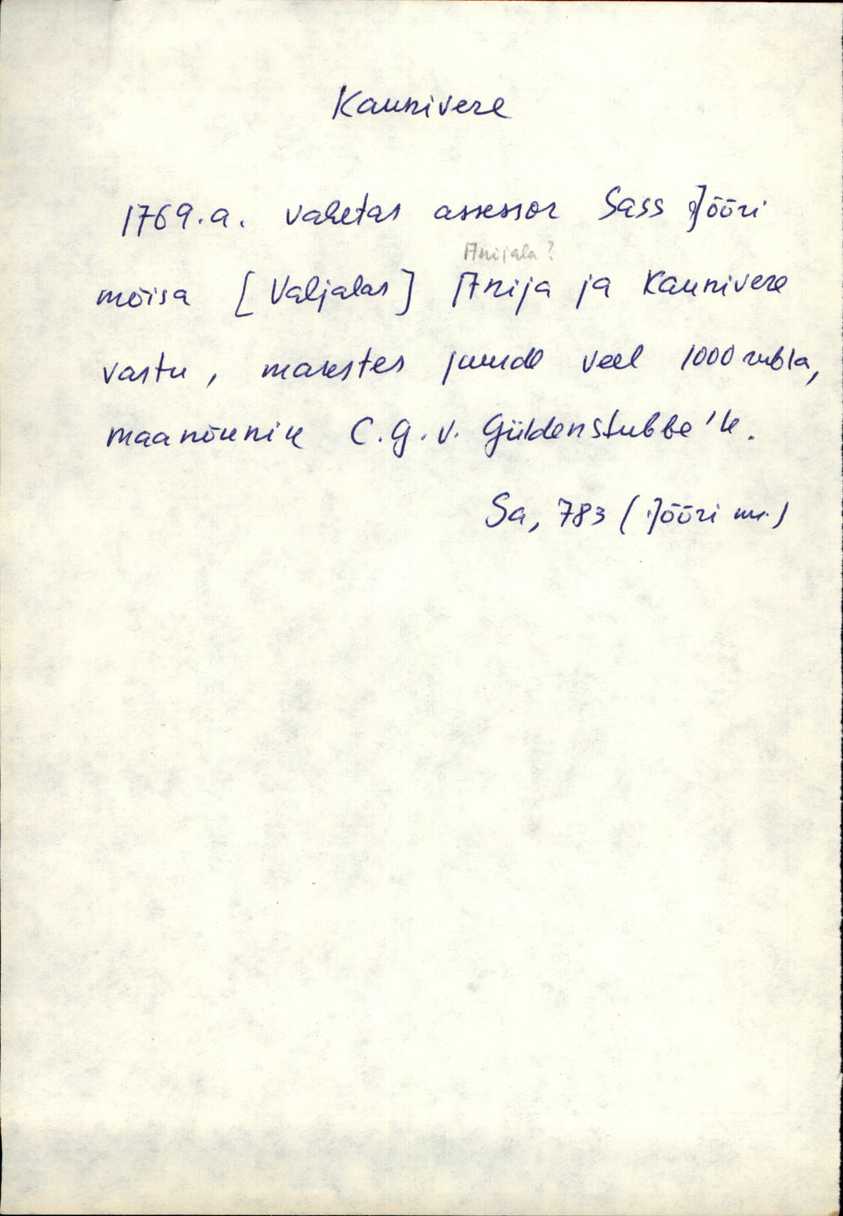 Kaunivere
1769.a. vahetas assessor Sass Jõõri
Anijala?
mõisa [Valjalas] Anija ja Kaunivere
vastu, makstes juurde veel 1000 rubla,
maanõunik C.G.v. Güldenstubbe'le.
Sa, 783 (Jõõri mr.)